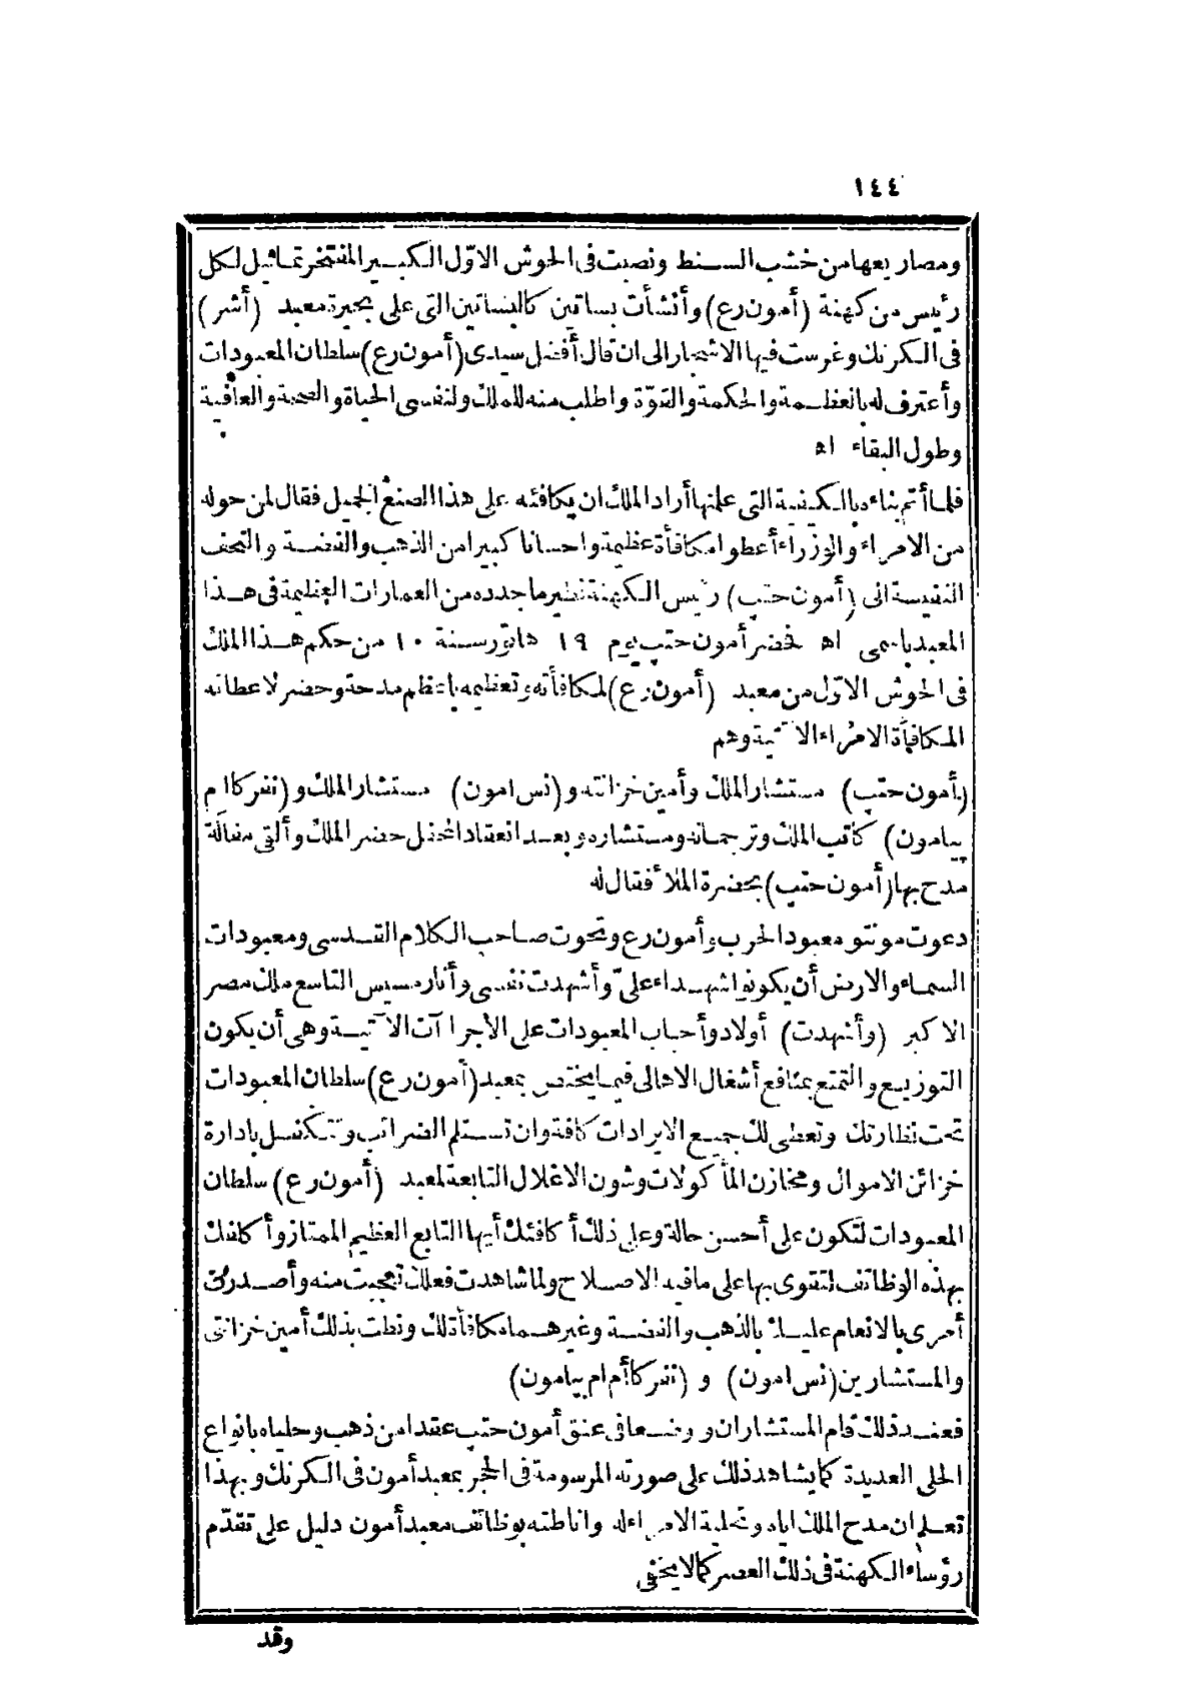 ١٤٤
ومصاريعها من خشب السنط ونصبت فى الحوش الاوّل الكبير المفتخر تماثيل لكل
رئيس من كهنة (أمون رع) وأنشأت بساتين كالبساتين التى على بحيرة معبد (أشر)
فى الكرنك وغرست فيها الاشجار الى ان قال أفضل سيدى (أمون رع) سلطان المعبودات
وأعترف له بالعظمة والحكمة والقوّة واطلب منه للملك ولنفسى الحياة والصحة والعافية
وطول البقاء اه
فلما أتم بناءه بالكيفية التى علمتها أراد الملك ان يكافئه على هذا الصنع الجميل فقال لمن حوله
من الامراء والوزراء أعطوا مكافأة عظيمة واحسانا كبيرا من الذهب والفضة والتحف
النفيسة الى (أمون حتب) رئيس الكهنة نظير ما جدده من العمارات العظيمة فى هذا
المعبد باسمى اه فحضر أمون حتب يوم ١٩ هاتور سنة ١٠ من حكم هذا الملك
فى الحوش الاوّل من معبد (أمون رع) لمكافأته وتعظيمه باعظم مدحة وحضر لاعطائه
المكافأة الامراء الآتية وهم
(أمون حتب) مستشار الملك وأمين خزانته و(نس امون) مستشار الملك و(نفر كاام
بيامون) كاتب الملك وترجمانه ومستشاره وبعد انعقاد المحفل حضر الملك وألقى مقالة
مدح بها (أمون حتب) بحضرة الملأ فقال له
دعوت مونتو معبود الحرب وأمون رع وتحوت صاحب الكلام القدسى ومعبودات
السماء والارض أن يكونوا شهداء علىّ وأشهدت نفسى وأنا رمسيس التاسع ملك مصر
الاكبر (وأشهدت) أولاد وأحباب المعبودات على الاجرا آت الآتية وهى أن يكون
التوزيع والتمتع بمنافع أشغال الاهالى فيما يختص بمعبد (أمون رع) سلطان المعبودات
تحت نظارتك وتعطى لك جميع الايرادات كافة وان تستلم الضرائب وتتكفل بادارة
خزائن الاموال ومخازن المأكولات وشون الاغلال التابعة لمعبد (أمون رع) سلطان
المعبودات لتكون على أحسن حالة وعلى ذلك أكافئك أيها التابع العظيم الممتاز وأكافك
بهذه الوظائف لتقوى بها على ما فيه الاصلاح ولما شاهدت فعلك تعجبت منه وأصدرت
أمرى بالانعام عليك بالذهب والفضة وغيرهما مكافأة لك ونطت بذلك أمين خزانتى
والمستشارين (نس امون) و (نفر كا أم ام بيامون)
فعند ذلك قام المستشاران ووضعا فى عنق أمون حتب عقدا من ذهب وحلياه بانواع
الحلى العديدة كما يشاهد ذلك على صورته المرسومة فى الحجر بمعبد أمون فى الكرنك وبهذا
تعلم ان مدح الملك اياه وتحلية الامراء له واناطته بوظائف معبد أمون دليل على تقدّم
رؤساء الكهنة فى ذلك العصر كما لا يخفى
وقد